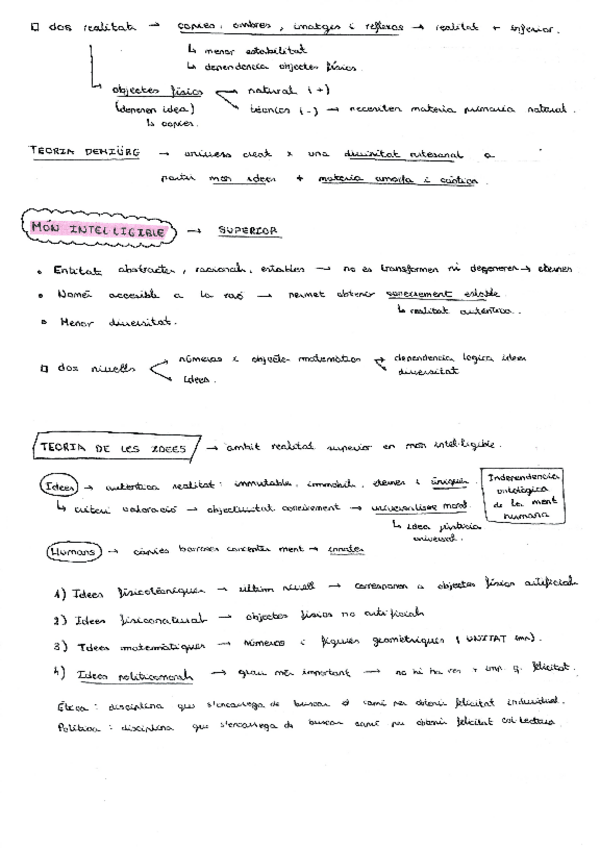 □ dos realitats → còpies, ombres, imatges i reflexos → realitat + inferior.
↳ menor estabilitat
↳ dependència objectes físics.
objectes físics → natural (+)
(deneren idea) → tècnics (-) → necesiten materia primaria natural.
↳ còpies.
TEORIA DEMIÜRG → univers creat x una divinitat artesanal a
partir món idees + matèria amorfa i caòtica.
MÓN INTEL·LIGIBLE → SUPERIOR
• Entitats abstractes, racionals, estables → no es transformen ni degeneren → eternes
• Només accesible a la raó → permet obtenir coneixement estable.
↳ realitat autèntica.
• Menor diversitat.
□ dos nivells → números i objecte matemàtics → dependencia lògica idees
diversitat
Idees.
TEORIA DE LES IDEES → àmbit realitat superior en món intel·ligible.
Idees → autentica realitat: immutable, immòbil, eternes i úniques
↳ criteri valoració → objectivitat coneixement → universalisme moral.
↳ idea justícia
universal.
Independència
ontològica
de la ment
humana
Humans → còpies borroses conceptes ment → innates
1) Idees fisicotècniques → últim nivell → corresponen a objectes físics artificials
2) Idees fisiconatural → objectes físics no artificials
3) Idees matemàtiques → números i figures geomètriques (UNITAT
4) Idees políticomorals → grau més important → no hi ha res + imp. q. felicitat.
Ètica: disciplina que s'encarrega de buscar el camí per obtenir felicitat individual.
Política: disciplina que s'encarrega de buscar camí per obtenir felicitat col·lectiva.